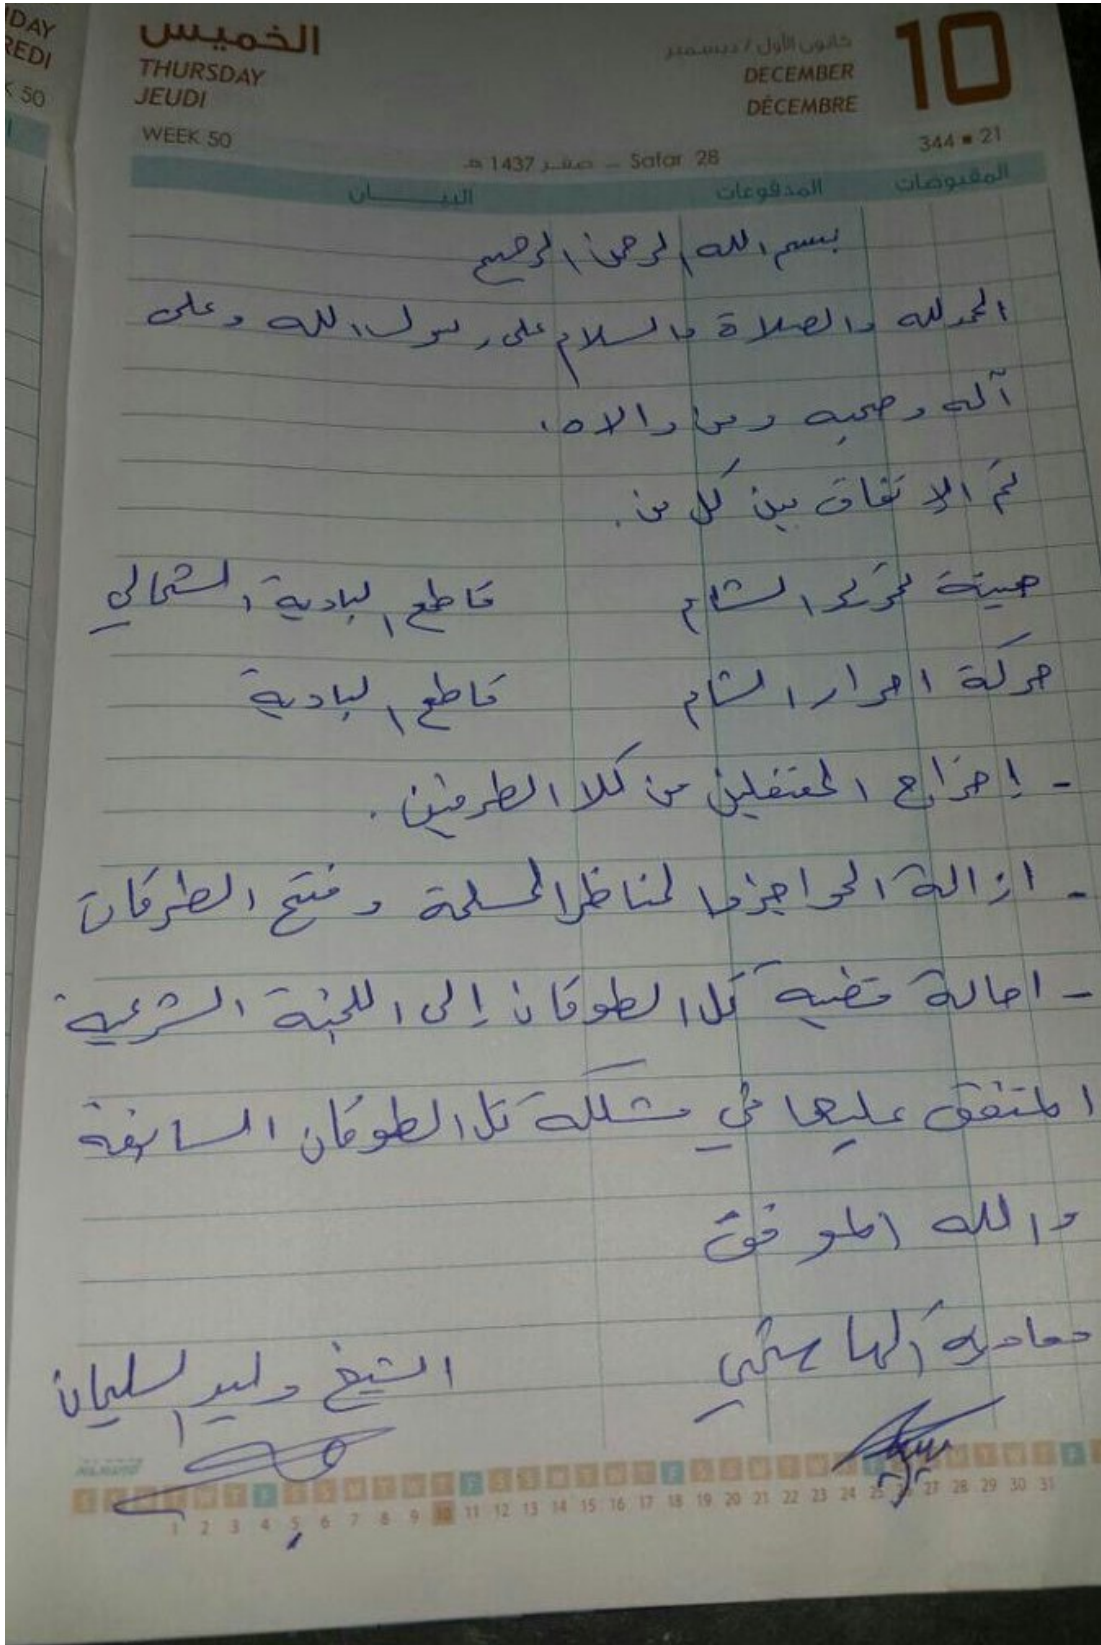 DAY
REDI
K 50
الخميس
THURSDAY
JEUDI
WEEK 50
كانون الأول / ديسمبر
DECEMBER
DÉCEMBRE
10
344 ▪ 21
صفر 1437 هـ – Safar 28
المقبوضات المدفوعات البيــــــان
بسم الله الرحمن الرحيم
الحمدلله والصلاة والسلام على رسول الله وعلى
آله وصحبه ومن والاه.
تم الإتفاق بين كل من.
هيئة تحرير الشام قاطع البادية الشمالي
حركة احرار الشام قاطع البادية
- إخراج المعتقلين من كلا الطرفين.
- ازالة الحواجز والمناظر المسلحة وفتح الطرقات
- احالة قضية تل الطوقان إلى اللجنة الشرعية
المتفق عليها في مشكلة تل الطوقان السابقة
والله الموفق
معاوية الهاشمي الشيخ وليد السليمان
S M T W T F S S M T W T F S S M T W T F S
1 2 3 4 5 6 7 8 9 10 11 12 13 14 15 16 17 18 19 20 21 22 23 24 25 26 27 28 29 30 31